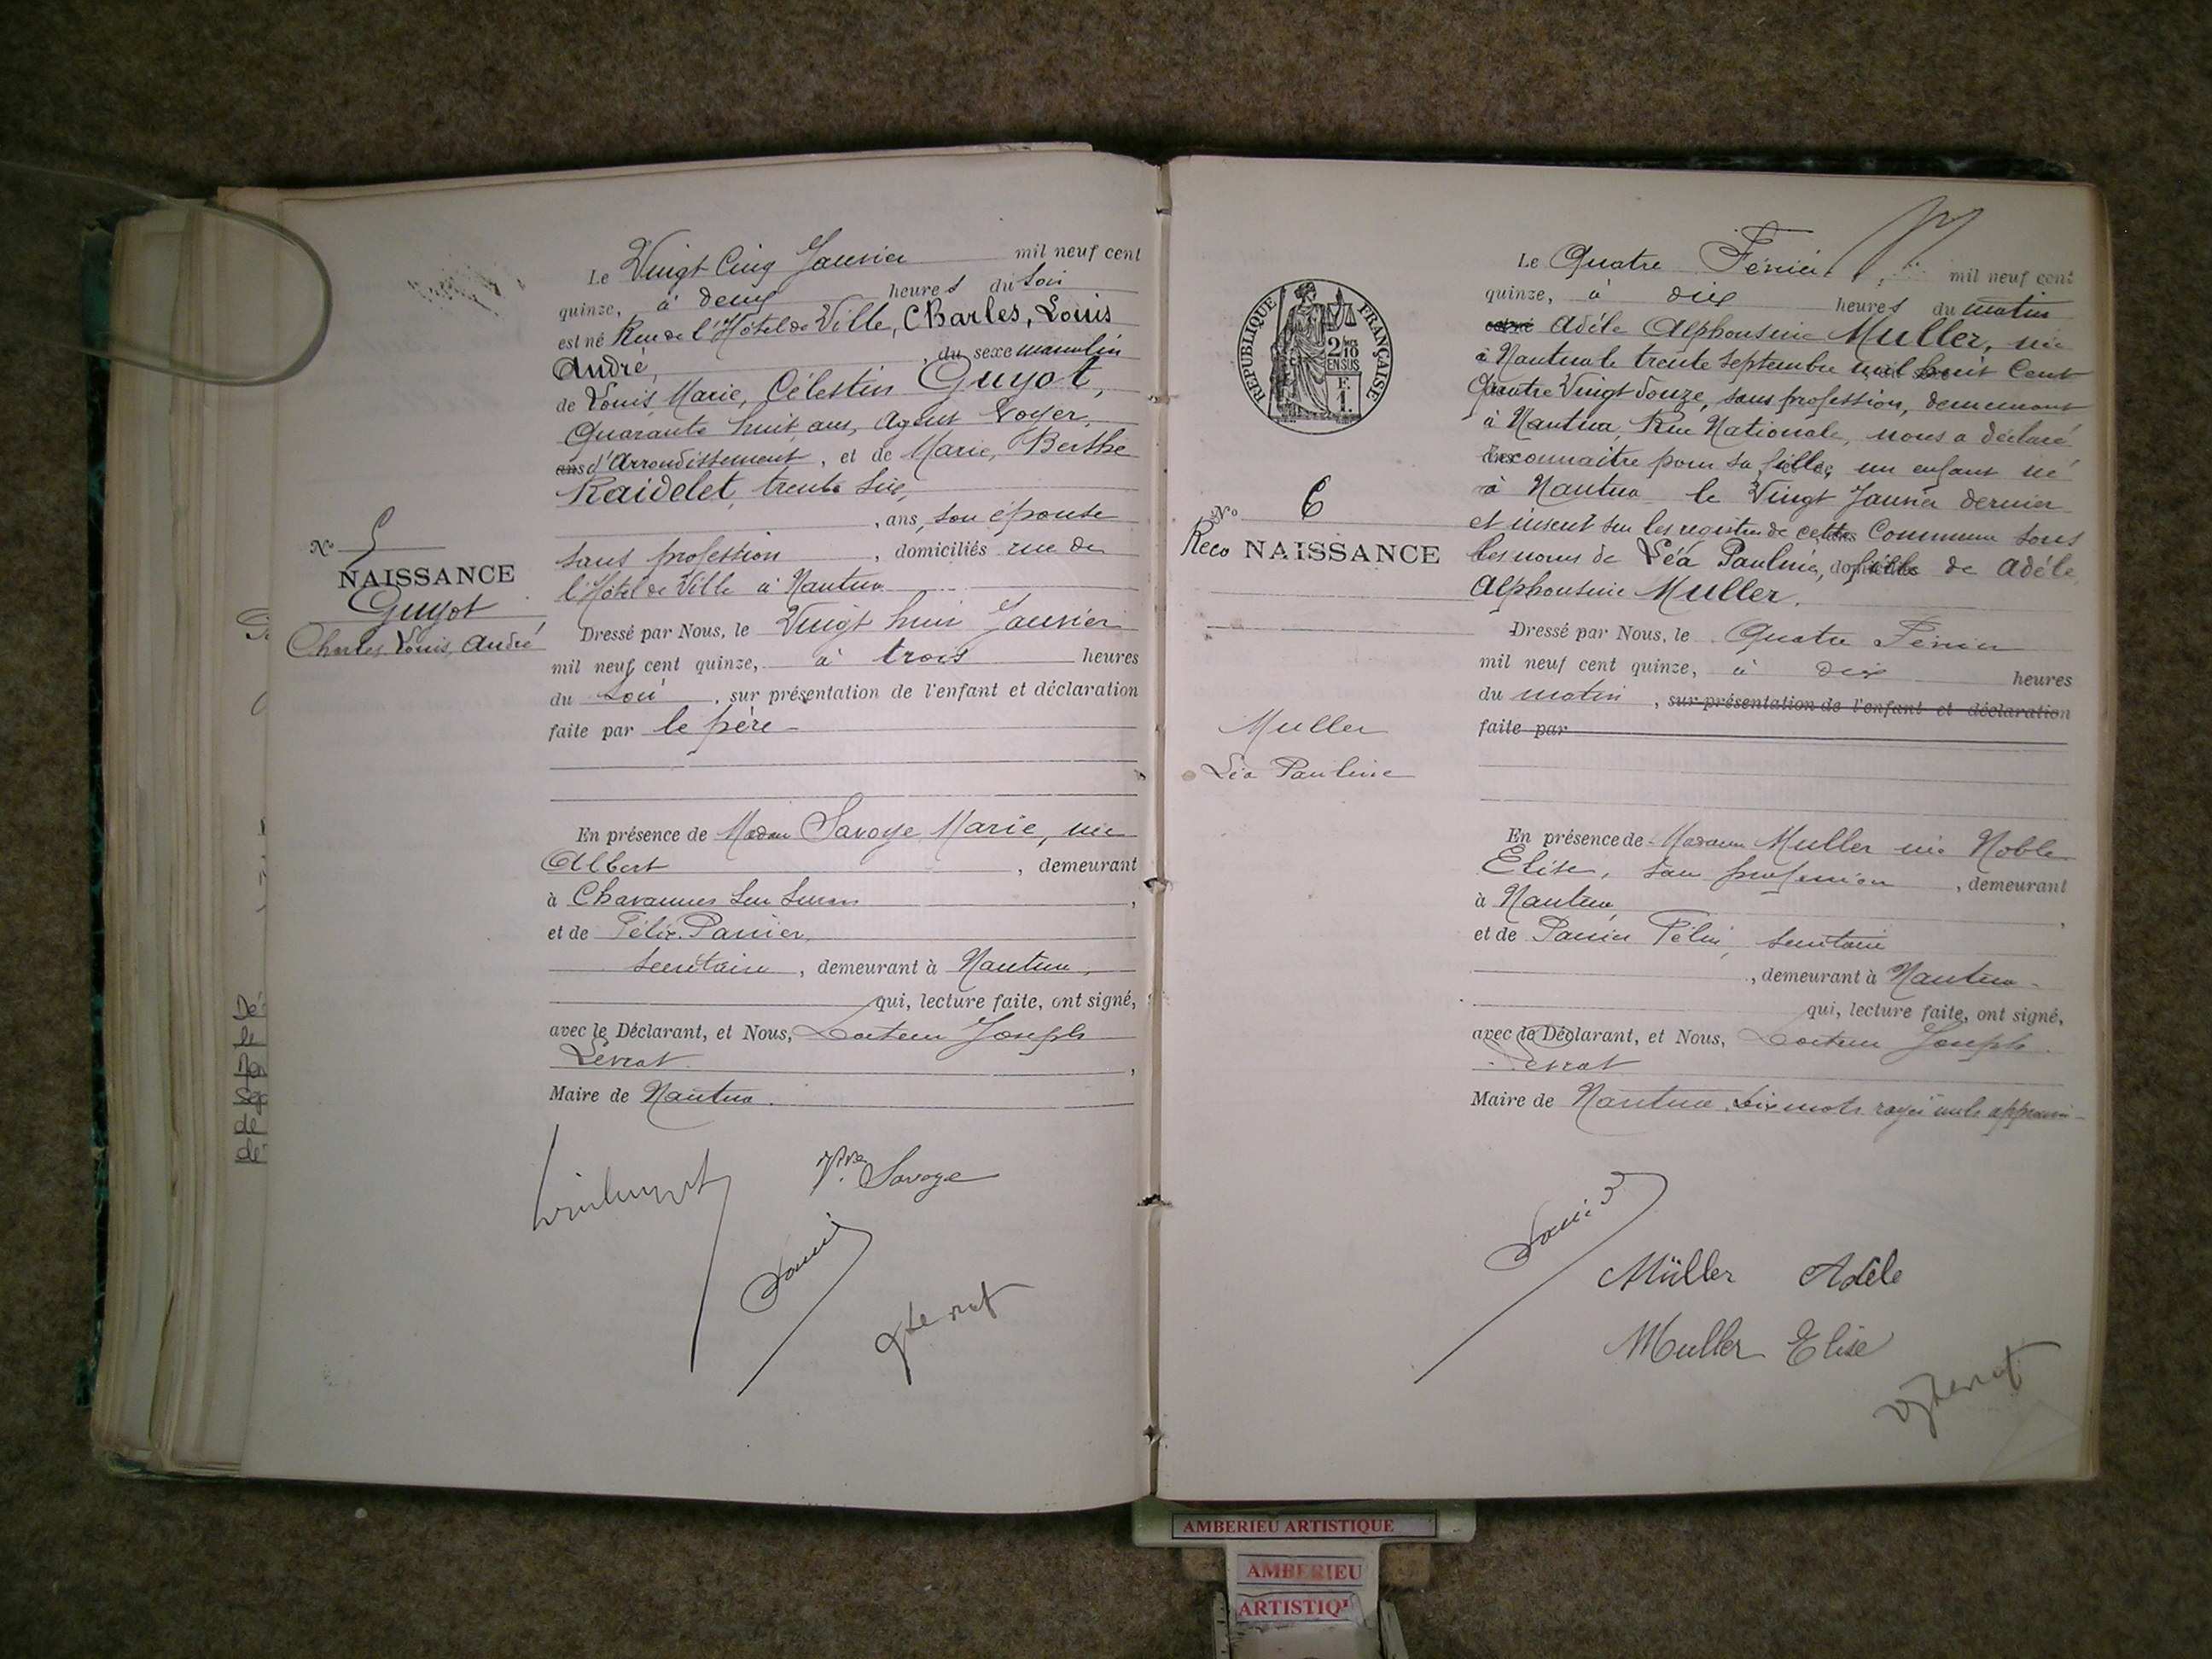 Le Vingt Cinq Janvier mil neuf cent
quinze, à deux heures du soir
est né Rue de l'Hôtel de Ville, Charles, Louis
André, du sexe masculin
de Louis, Marie, Célestin Guyot,
Quarante huit ans, Agent Voyer,
ans d'Arrondissement, et de Marie, Berthe
Raidelet, trente six,
, ans, son épouse
sans profession, domiciliés rue de
l'Hôtel de Ville à Nantua
N° 5
NAISSANCE
Guyot
Charles Louis, André
Dressé par Nous, le Vingt huit Janvier
mil neuf cent quinze, à trois heures
du soir, sur présentation de l'enfant et déclaration
faite par le père
En présence de Madame Savoye Marie, née
Albert, demeurant
à Chavannes sur Suran,
et de Félix Panier,
secrétaire, demeurant à Nantua,
qui, lecture faite, ont signé,
avec le Déclarant, et Nous, Docteur Joseph
Levrat,
Maire de Nantua.
Vve Savoye
De
le
de
de
RÉPUBLIQUE FRANÇAISE
2/10
EN SUS
F.
1.
N° 6
Reco NAISSANCE
Muller
Léa Pauline
Le Quatre Février mil neuf cent
quinze, à dix heures du matin
est né Adèle Alphonsine Muller, née
à Nantua le trente septembre mil huit Cent
Quatre Vingt douze, sans profession, demeurant
à Nantua, Rue Nationale, nous a déclaré
reconnaitre pour sa fille, un enfant né
à Nantua le Vingt Janvier dernier
et inscrit sur les registres de cette Commune sous
les noms de Léa Pauline, fille de Adèle
Alphonsine Muller.
Dressé par Nous, le Quatre Février
mil neuf cent quinze, à dix heures
du matin, sur présentation de l'enfant et déclaration
faite par
En présence de Madame Muller née Noble
Elise, sans profession, demeurant
à Nantua,
et de Panier Félix, secrétaire
, demeurant à Nantua
qui, lecture faite, ont signé,
avec le Déclarant, et Nous, Docteur Joseph
Levrat
Maire de Nantua. Dix mots rayés nuls
Müller Adèle
Muller Elise
AMBERIEU ARTISTIQUE
AMBERIEU
ARTISTIQ